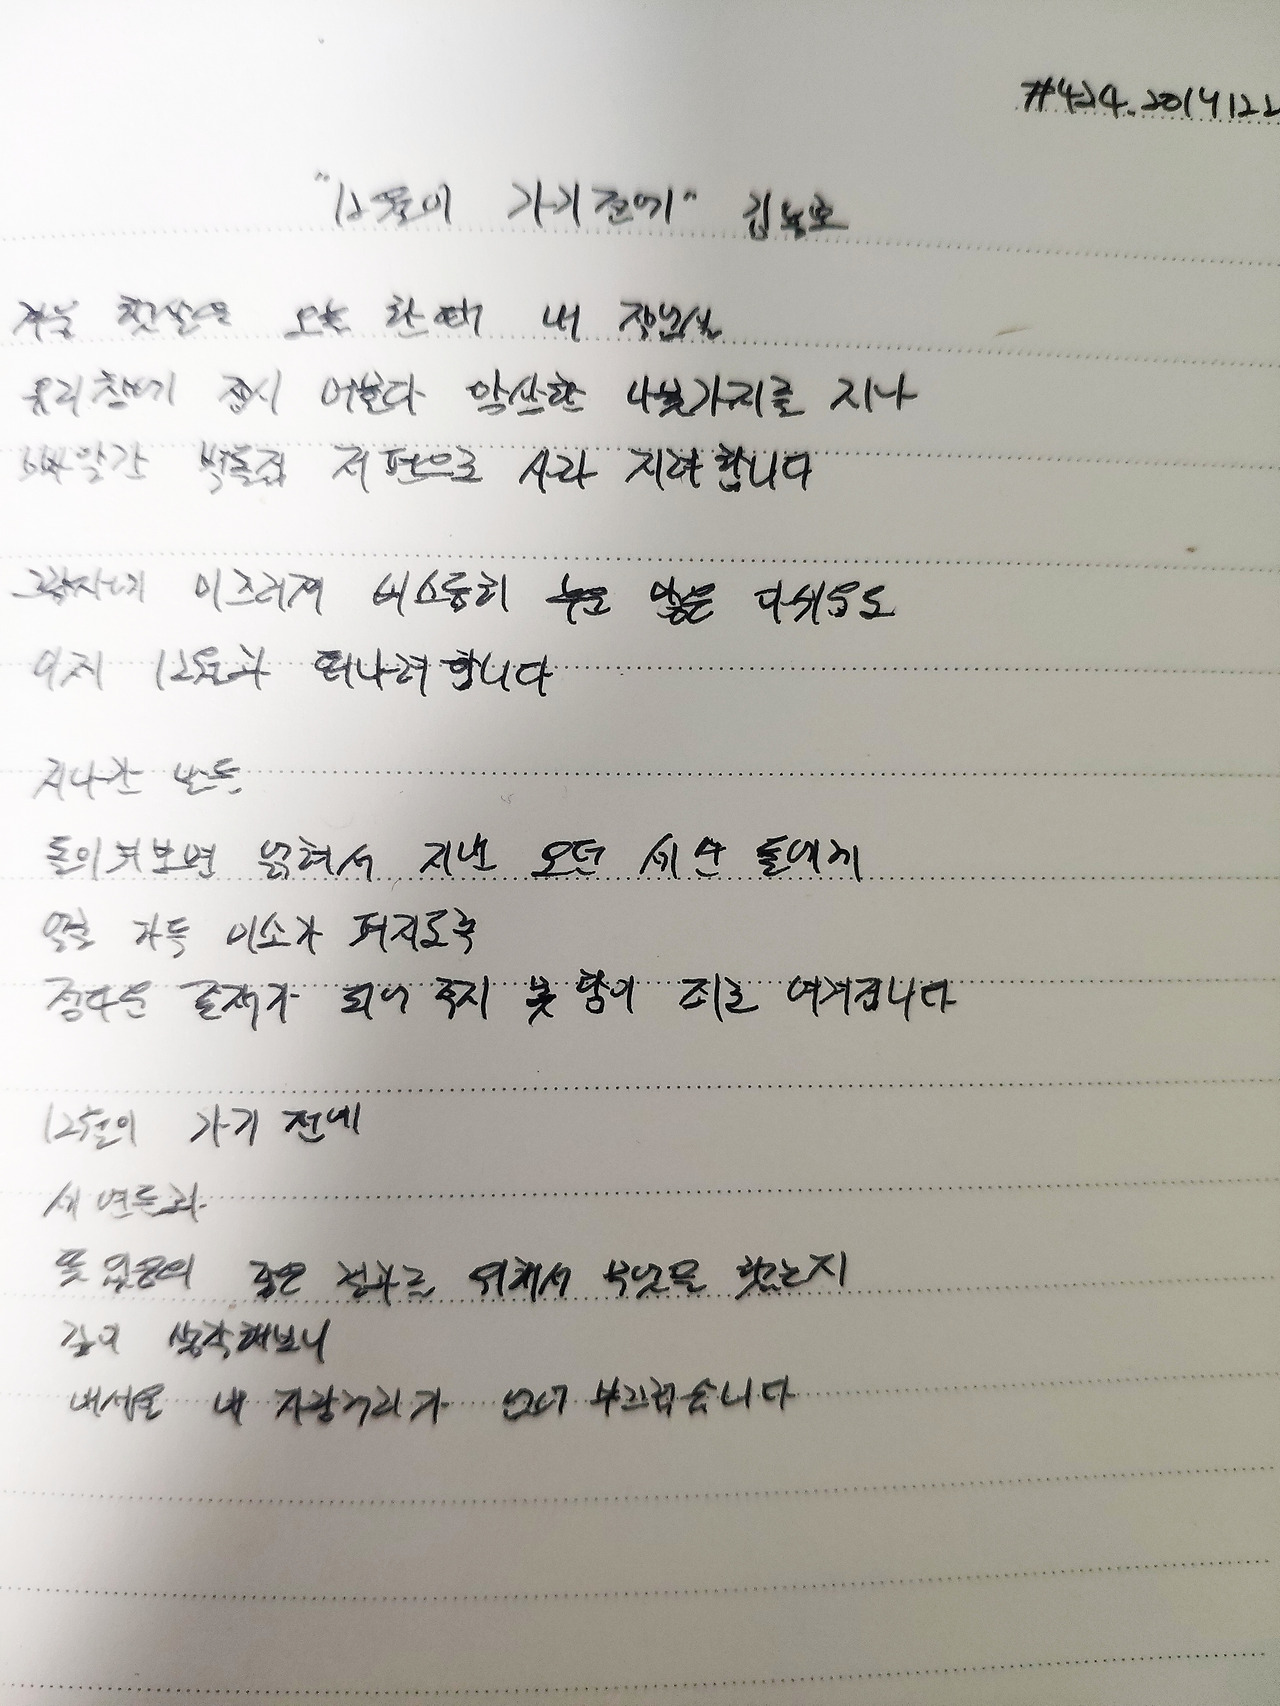 #424. 2019122
"12월이 가기전에" 김농호
겨울 햇살은 오늘 한때 내 작난실
유리창에 잠시 머물다 앙상한 나뭇가지를 지나
빠알간 벽돌집 저 편으로 사라 지려합니다
그림자에 이즈러져 비스듬히 누운 많은
이제 12월과 떠나려 합니다
지나간 반들
돌이켜보면 얽혀서 지낸 모든 시간 들에게
얼굴 가득 미소가 퍼지도록
정다운 존재가 되어 주지 못 함이 죄로 여겨집니다
12월이 가기 전에
세 변들과
뜻 있음에 좋은 결과를 위해서 무엇을 했는지
깊이 생각해보니
내세울 내 자랑거리가 없어 부끄럽습니다